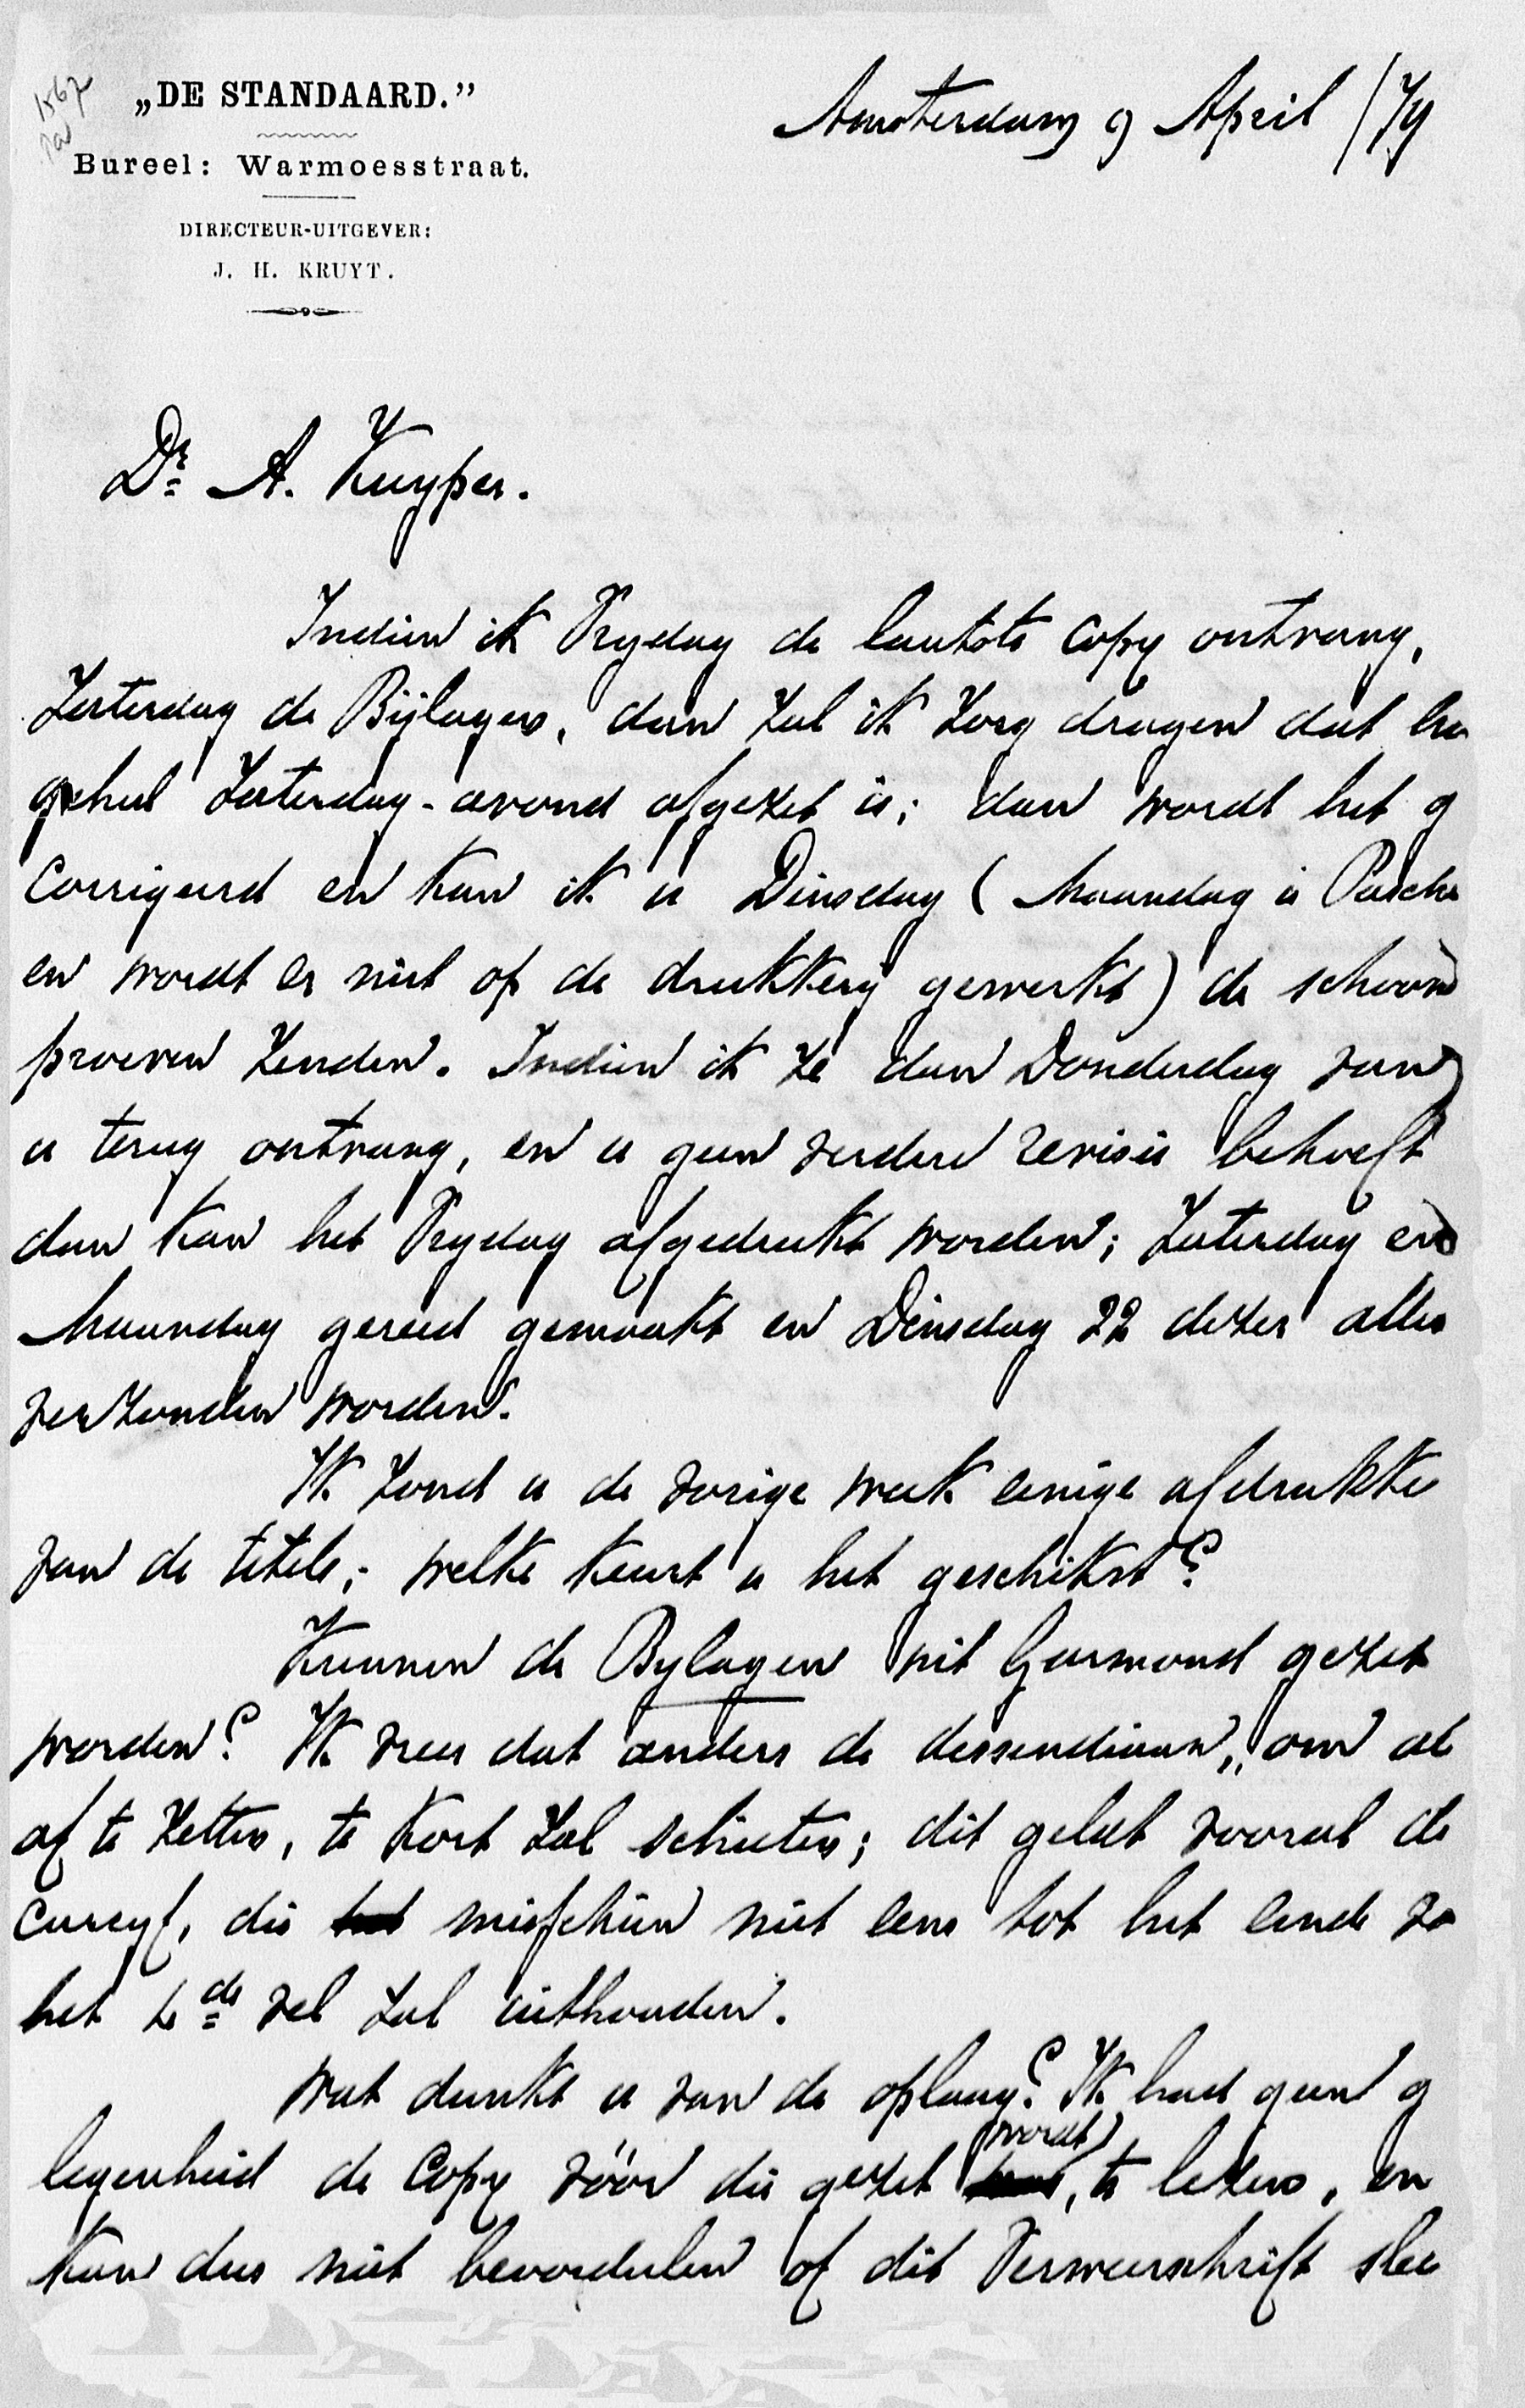 „DE STANDAARD.”
Bureel: Warmoesstraat.
DIRECTEUR-UITGEVER:
J. H. KRUYT.
Amsterdam 9 April /79
Dr. A. Kuyper.
Indien ik Vrydag de laatste Copy ontvang,
Zaterdag de Bijlagen, dan zal ik zorg dragen dat he
geheel Zaterdag-avond afgezet is; dan wordt het g
corrigeerd en kan ik u Dinsdag (Maandag is Pasche
en wordt er niet op de drukkery gewerkt) de schoone
proeven zenden. Indien ik ze dan Donderdag van
u terug ontvang, en u geen verdere revisie behoeft
dan kan het Vrydag afgedrukt worden; Zaterdag en
Maandag gereed gemaakt en Dinsdag 22 dezer alles
verzonden worden.
Ik zond u de vorige week eenige afdrukke
van de titels; welke keurt u het geschikst?
Kunnen de Bylagen uit Garmond gezet
worden? Ik vrees dat anders de dessendiaan, om al
af te zetten, te kort zal schieten; dit geldt vooral de
cursyf, die misschien niet eens tot het einde va
het 4de vel zal uithouden.
Wat dunkt u van de oplaag? Ik had geen g
legenheid de Copy vóór die gezet wordt, te lezen, en
kan dus niet beoordeelen of dit Verweerschrift slec